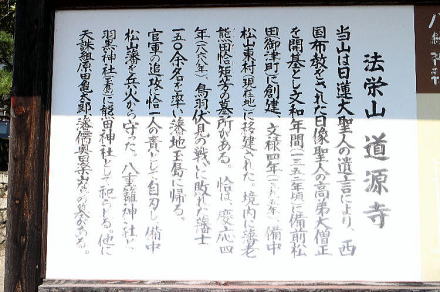 法栄山 道源寺
当山は日蓮大聖人の遺言により、西
国布教をされた日像聖人の高弟大僧正
を開基とし文和年間(一三五二年頃)に備前松
田御津町に創建、文禄四年、備中
松山東村(現在地)に移建された。境内に藩老
熊田恰矩芳の墓所がある。恰は、慶応四
年(一八六八年)、鳥羽伏見の戦いに敗れた藩士
一五〇余名を率い藩地玉島に帰る。
官軍の追攻に恰一人の責いとして自刃し備中
松山藩を兵火から守った。八重籬神社と、
羽黒神社(玉島)に熊田神社として祀らる。他に
天誅組原田亀太郎、藩儒奥田楽山などの墓がある。